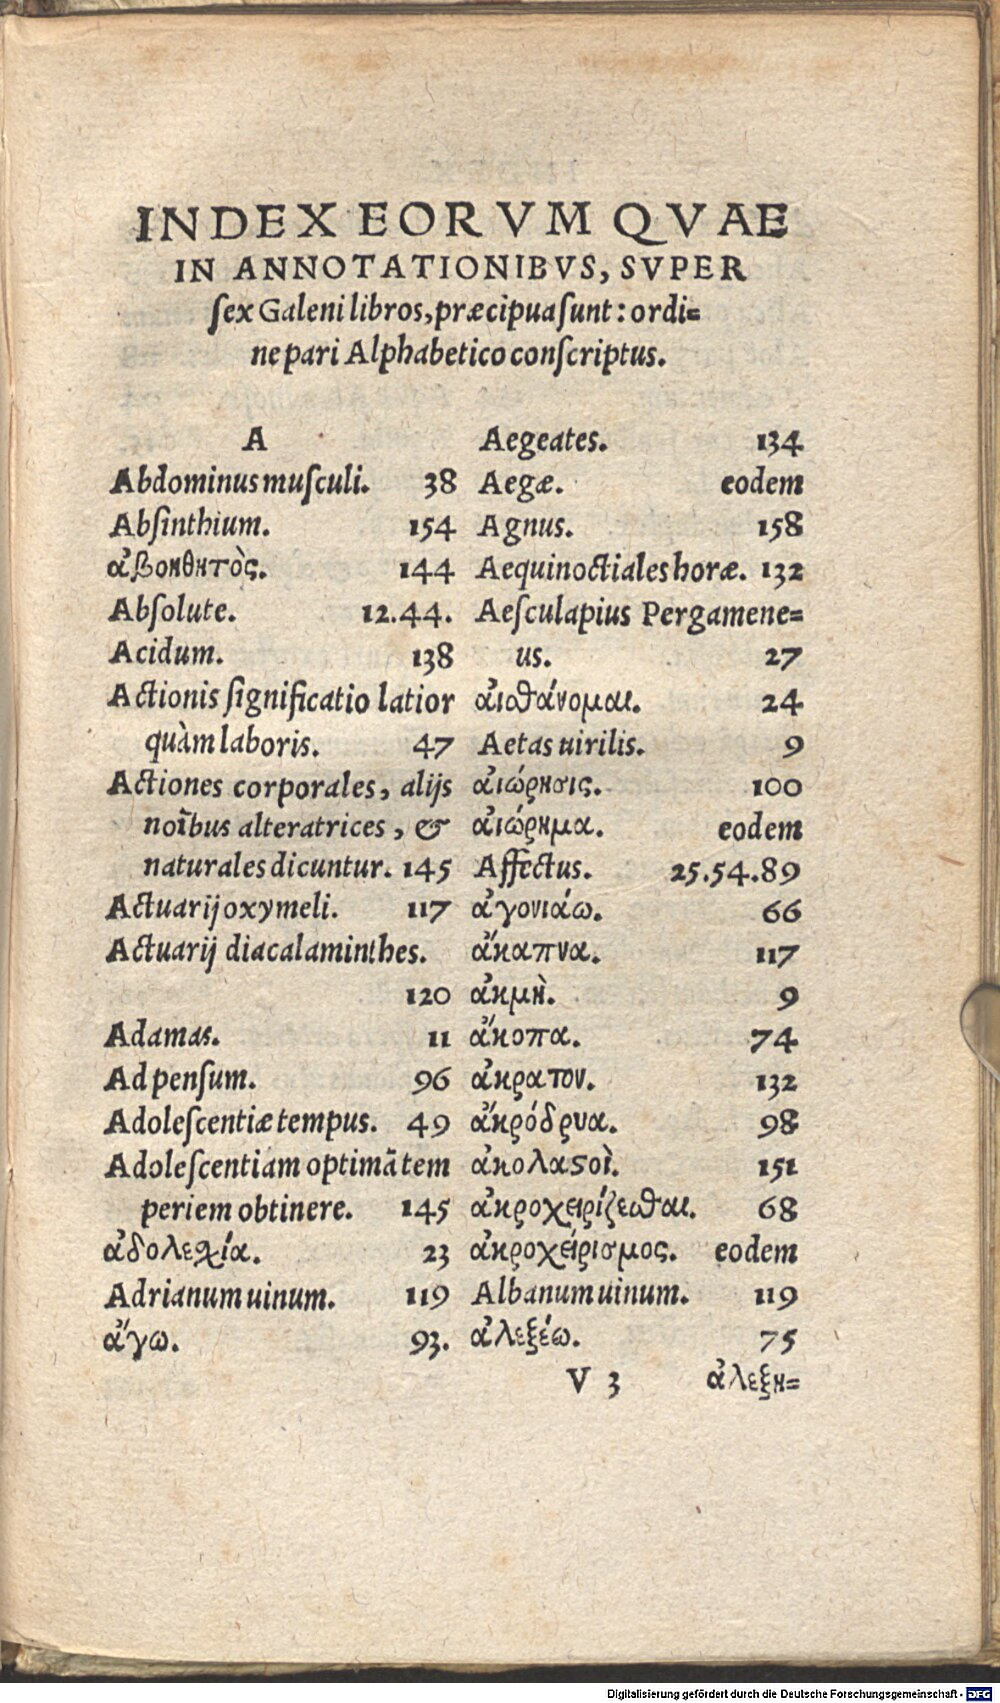 INDEX EORVM QVAE
IN ANNOTATIONIBVS, SVPER
ſex Galeni libros, præcipua ſunt: ordi=
ne pari Alphabetico conſcriptus.
A
Abdominus muſculi. 38
Abſinthium. 154
ἀβοηθητὸς. 144
Abſolute. 12.44.
Acidum. 138
Actionis ſignificatio latior
quàm laboris. 47
Actiones corporales, alijs
noĩbus alteratrices, &
naturales dicuntur. 145
Actuarij oxymeli. 117
Actuarij diacalaminthes.
120
Adamas. 11
Ad penſum. 96
Adoleſcentiæ tempus. 49
Adoleſcentiam optimã tem
periem obtinere. 145
ἀδολεχία. 23
Adrianum uinum. 119
ἄγω. 93.
Aegeates. 134
Aegæ. eodem
Agnus. 158
Aequinoctiales horæ. 132
Aeſculapius Pergamene=
us. 27
αἰσθάνομαι. 24
Aetas uirilis. 9
αἰώρησις. 100
αἰώρημα. eodem
Affectus. 25.54.89
ἀγονιάω. 66
ἄκαπνα. 117
ἀκμὴ. 9
ἄκοπα. 74
ἄκρατον. 132
ἄκρόδρυα. 98
ἀκολαϛοὶ. 151
ἀκροχειρίζεσθαι. 68
ἀκροχείρισμος. eodem
Albanum uinum. 119
ἀλεξέω. 75
V 3 ἀλεξη=
Digitalisierung gefördert durch die Deutsche Forschungsgemeinschaft - DFG